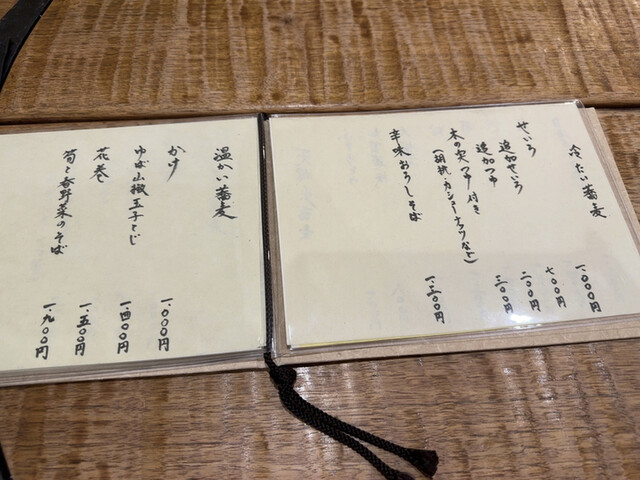 冷たい蕎麦
せいろ 一、〇〇〇円
追加せいろ 七〇〇円
追加つゆ 二〇〇円
木の実つゆ付き 三〇〇円
(胡桃・カシューナッツなど)
辛味おろしそば 一、三〇〇円
温かい蕎麦
かけ 一、〇〇〇円
ゆば山椒玉子とじ 一、四〇〇円
花巻 一、五〇〇円
筍と春野菜のそば 一、九〇〇円